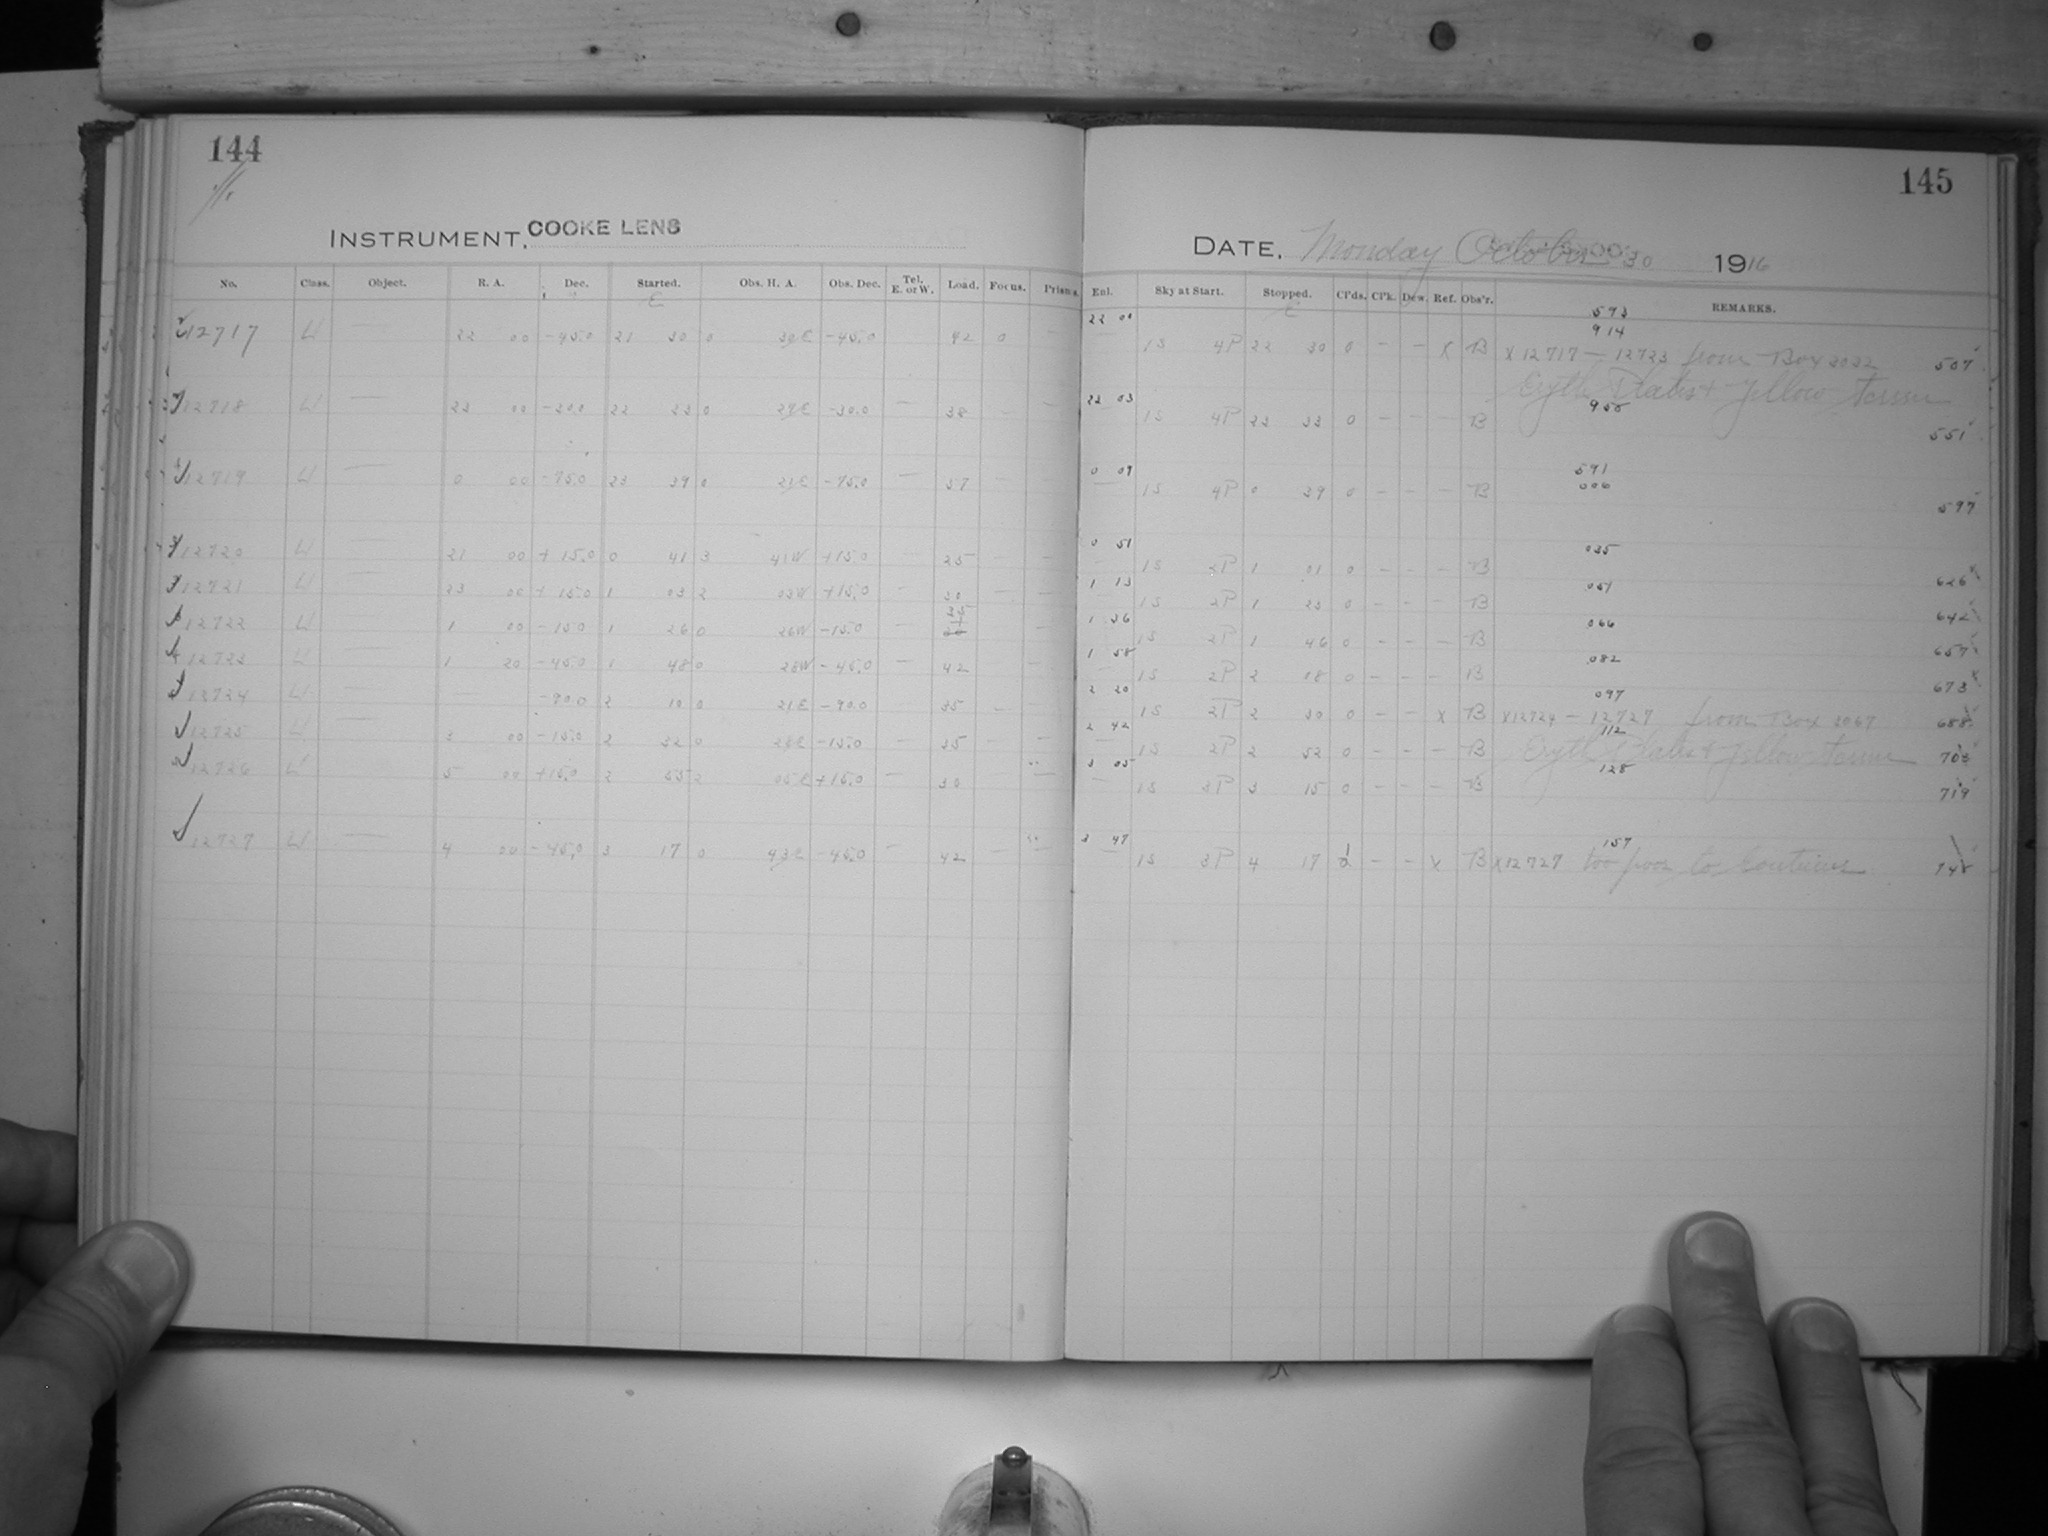 144
145
INSTRUMENT, COOKE LENS
DATE, Monday October 30 1916
No. Class. Object. R. A. Dec. Started. Obs. H. A. Obs. Dec. Tel. E. or W. Load. Focus. Prisms. Enl. Sky at Start. Stopped. Cl'ds. Cl'k. Dew. Ref. Obs'r. REMARKS.
E
593
22 00 914
12717 22 00 -45.0 21 30 0 30E -45.0 42 0 1S 4P 22 30 0 - - X B X12717 - 12723 from Box 2032 507
22 03 950
12718 23 00 -30.0 22 33 0 27E -30.0 38 1S 4P 23 33 0 - - - B 551
0 09 591
006
12719 0 00 -75.0 23 39 0 21E -75.0 - 37 - 1S 4P 0 39 0 - - - B 597
0 51 035
12720 21 00 +15.0 0 41 3 41W +15.0 - 25 - 1S 2P 1 01 0 - - - B 626
1 13 051
12721 23 00 +15.0 1 03 2 03W +15.0 - 30 - 1S 2P 1 23 0 - - - B 642
1 36 066
12722 1 00 -15.0 1 26 0 26W -15.0 - 35 - 1S 2P 1 46 0 - - - B 657
1 58 082
12723 1 20 -45.0 1 48 0 28W -45.0 - 42 - 1S 2P 2 08 0 - - - B 673
2 20 097
12724 -90.0 2 10 0 21E -90.0 35 - 1S 2P 2 30 0 - - X B X12724 - 12727 from Box 2067 688
2 42 112
12725 3 00 -15.0 2 32 0 28E -15.0 - 35 - 1S 2P 2 52 0 - - - B 703
3 05 128
12726 5 00 +15.0 2 55 2 05E +15.0 - 30 1S 3P 3 15 0 - - - B 719
3 47 157
12727 4 00 -45.0 3 17 0 43E -45.0 - 42 - 1S 3P 4 17 - - X B X12727 too poor to continue 748